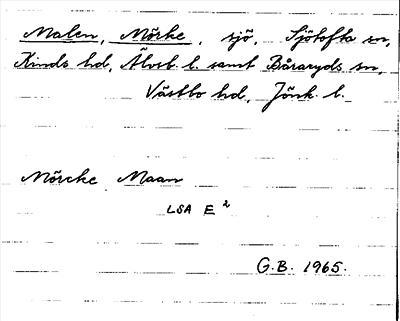 Malen, Mörke, sjö, Sjötofta sn,
Kinds hd, Älvsb. l. samt Båraryds sn,
Västbo hd, Jönk. l.
Mörcke Maan
LSA E 2
G.B. 1965.